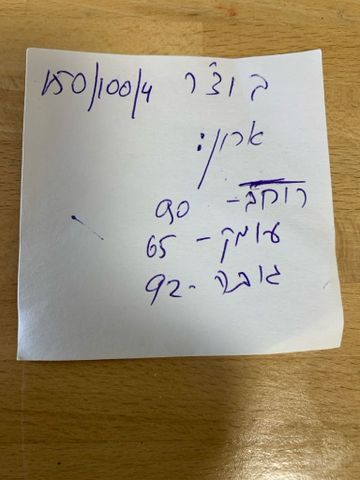 בוצ'ר 150/100/4
ארון:
רוחב - 90
עומק - 65
גובה - 92